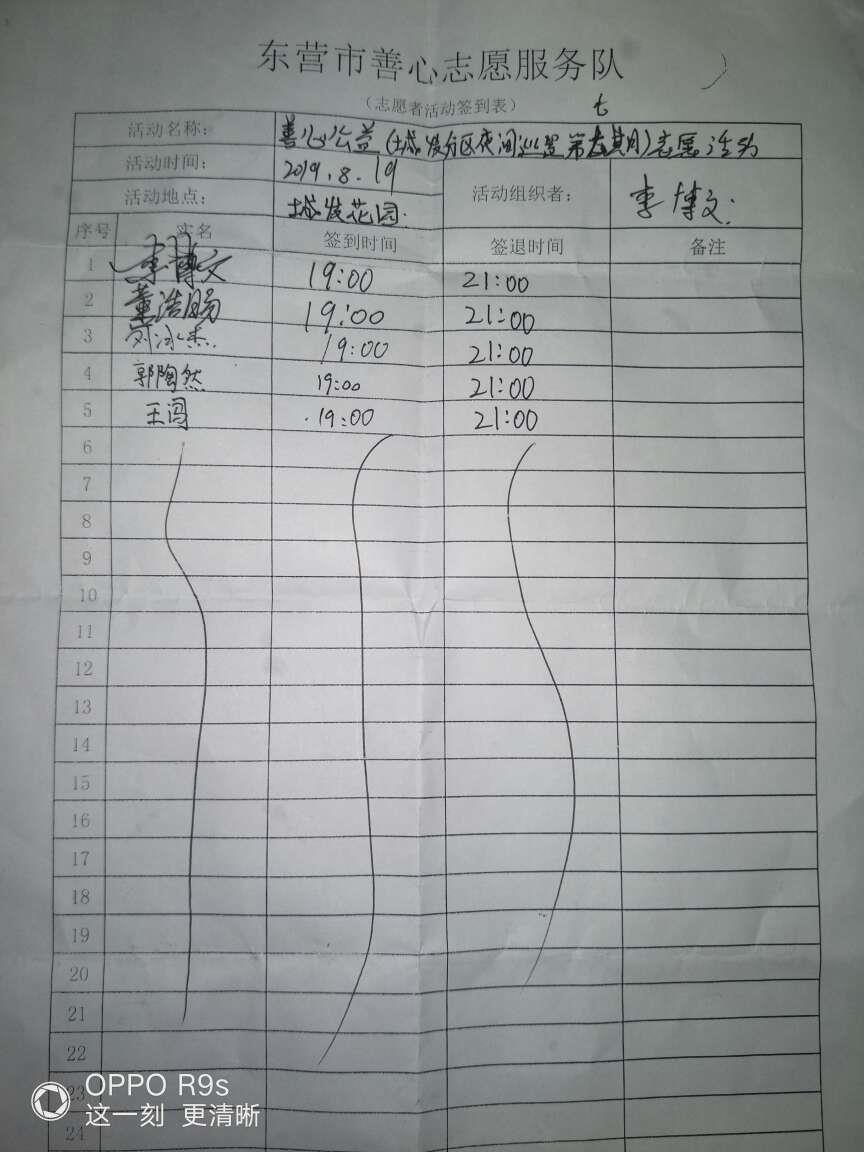 东营市善心志愿服务队
（志愿者活动签到表）
七
活动名称： 善心公益（城发分区夜间巡逻第期）志愿活动
活动时间： 2019.8.19
活动地点： 城发花园. 活动组织者： 李博文.
序号 实名 签到时间 签退时间 备注
1 李博文 19:00 21:00
2 董浩鹏 19:00 21:00
3 刘泳杰. 19:00 21:00
4 郭陶然 19:00 21:00
5 王闯 19:00 21:00
6
7
8
9
10
11
12
13
14
15
16
17
18
19
20
21
22
23
24
OPPO R9s
这一刻 更清晰